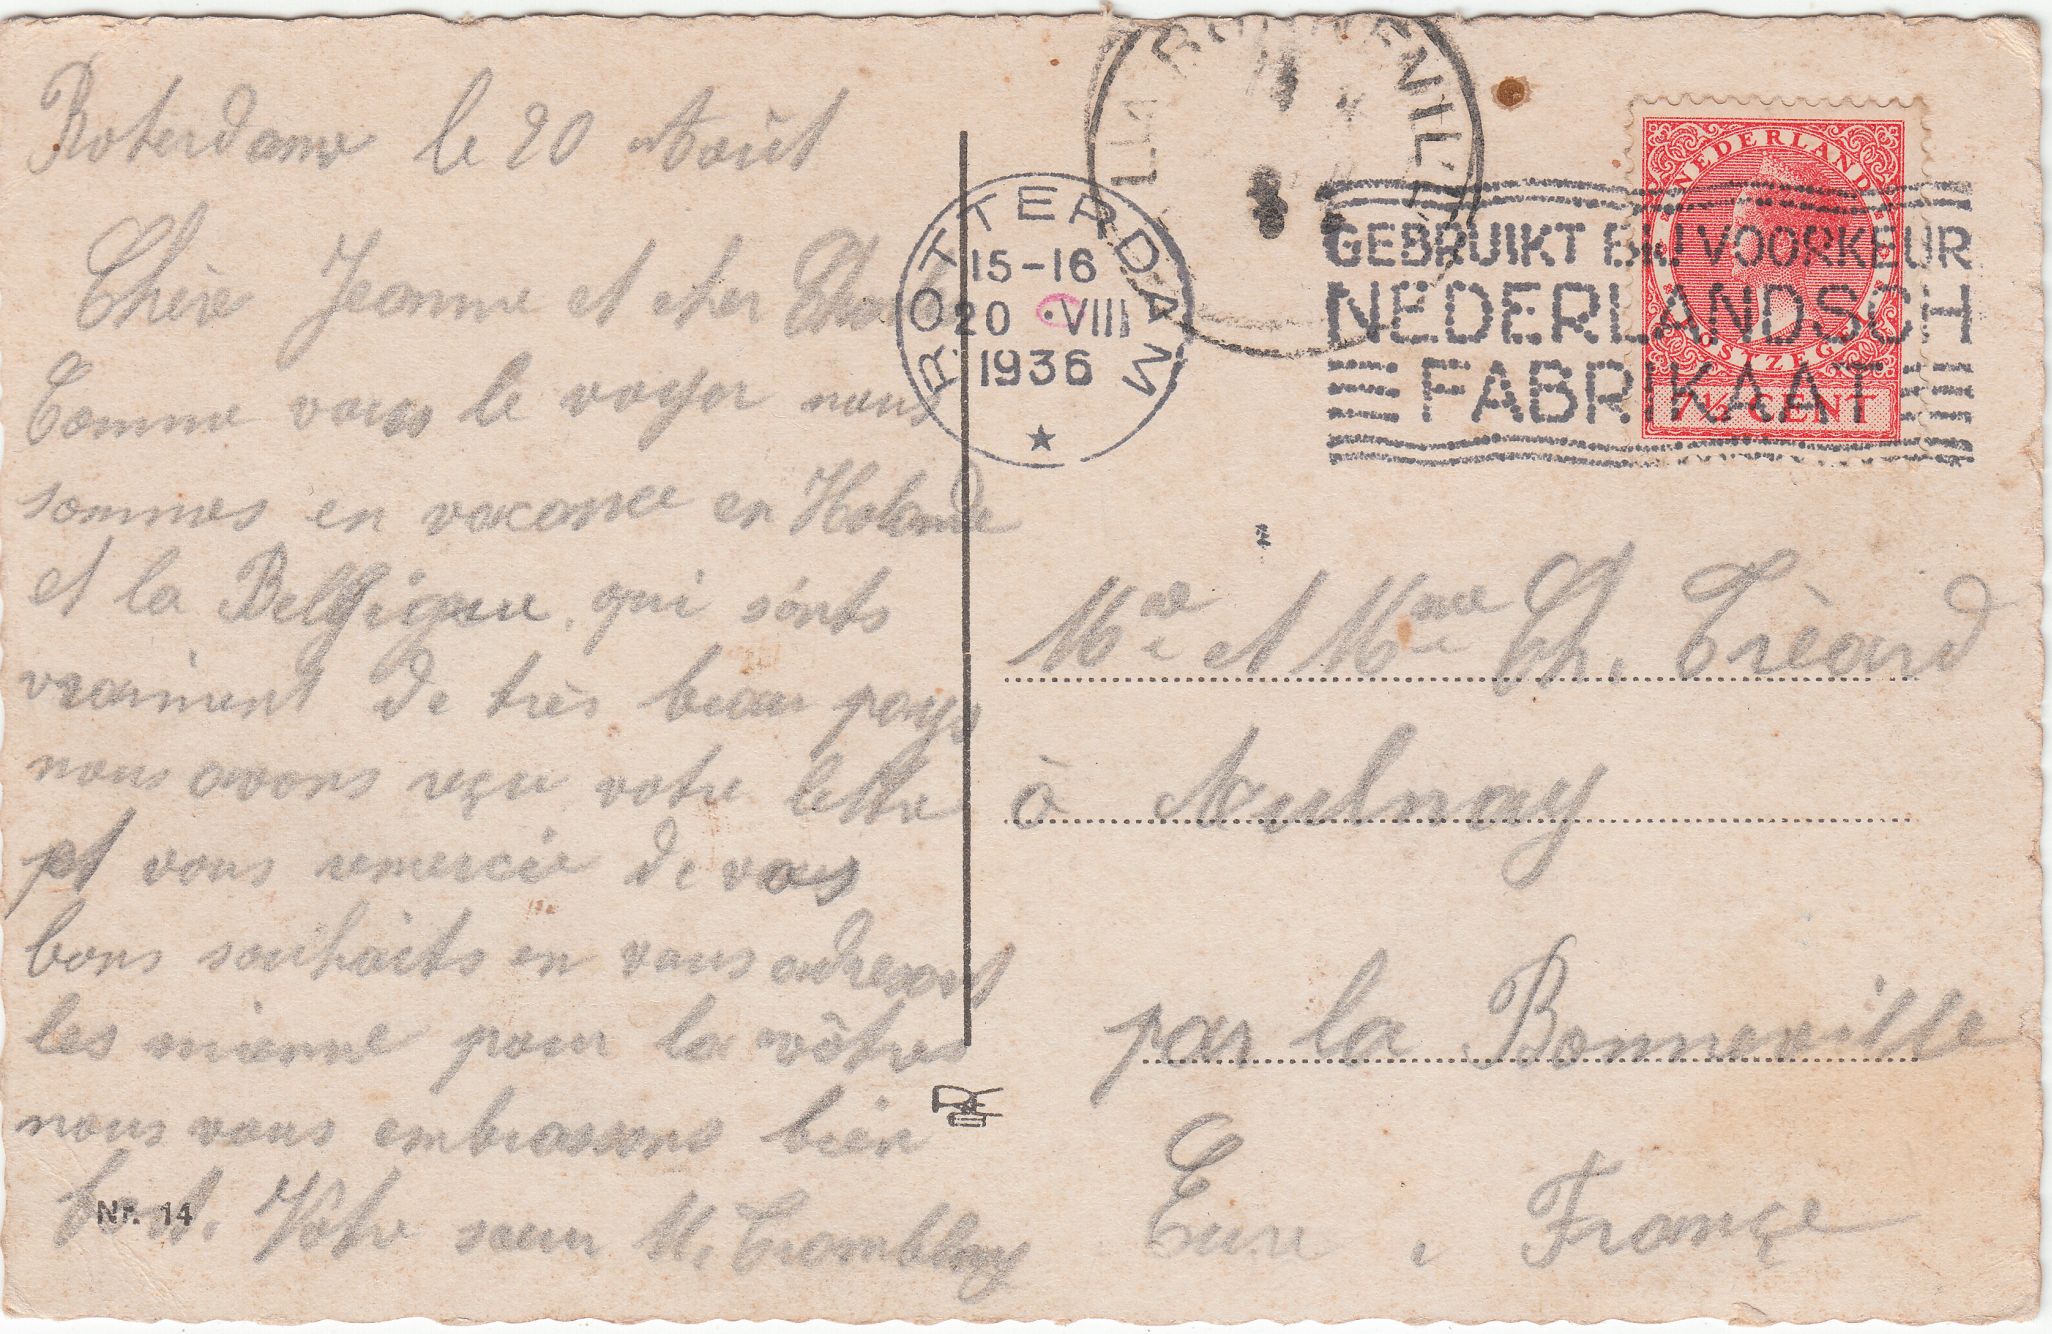 Roterdame le 20 Août
Chère Jeanne et cher
Comme vous le voyer nous
sommes en vacance en Holande
et la Belgique, qui sónts
vraiment de très beau pays
nous avons reçu votre lettre
et vous remercie de vos
bons souhaits en vous adresant
les mienne pour la vôtres
nous vous embrassons bien
fort. Vôtre sœur M. Tromblay
Nr. 14
LA BONNEVILLE
ROTTERDAM
15-16
20 VIII
1936
GEBRUIKT BIJ VOORKEUR
NEDERLANDSCH
FABRIKAAT
NEDERLAND
POSTZEGEL
7½ CENT
Mr et Mme Ch. Tréard
à Aulnay
par la Bonneville
Eure, Françe